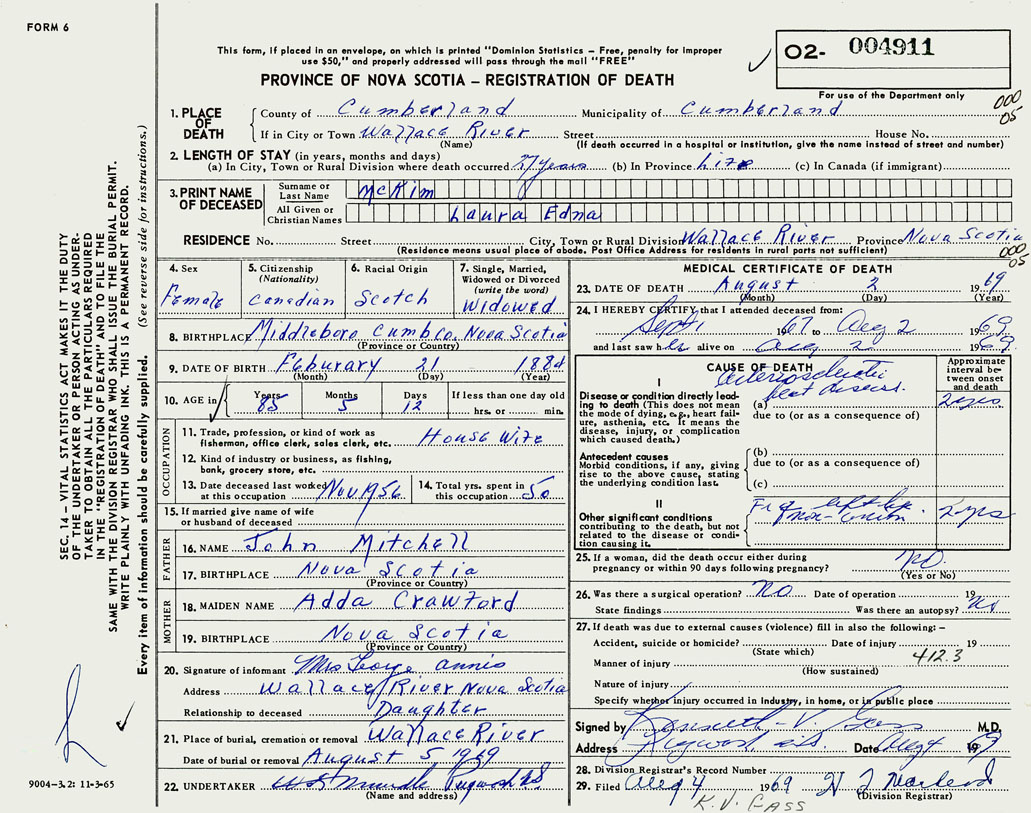 FORM 6
This form, if placed in an envelope, on which is printed "Dominion Statistics – Free, penalty for improper
use $50," and properly addressed will pass through the mail "FREE"
PROVINCE OF NOVA SCOTIA – REGISTRATION OF DEATH
O2- 004911
For use of the Department only
000
05
1. PLACE OF DEATH
County of Cumberland Municipality of Cumberland
If in City or Town Wallace River Street House No.
(Name) (If death occurred in a hospital or institution, give the name instead of street and number)
2. LENGTH OF STAY (in years, months and days)
(a) In City, Town or Rural Division where death occurred 77 years (b) In Province Life (c) In Canada (if immigrant)
3. PRINT NAME OF DECEASED
Surname or Last Name McKim
All Given or Christian Names Laura Edna
RESIDENCE No. Street City, Town or Rural Division Wallace River Province Nova Scotia
(Residence means usual place of abode. Post Office Address for residents in rural parts not sufficient)
000
05
4. Sex
Female
5. Citizenship
(Nationality)
Canadian
6. Racial Origin
Scotch
7. Single, Married,
Widowed or Divorced
(write the word)
Widowed
8. BIRTHPLACE Middleboro Cumb Co. Nova Scotia
(Province or Country)
9. DATE OF BIRTH Feburary 21 1884
(Month) (Day) (Year)
10. AGE in
Years Months Days If less than one day old
85 5 12 hrs. or min.
OCCUPATION
11. Trade, profession, or kind of work as
fisherman, office clerk, sales clerk, etc. House Wife
12. Kind of industry or business, as fishing,
bank, grocery store, etc.
13. Date deceased last worked
at this occupation Nov 1956
14. Total yrs. spent in
this occupation 50
15. If married give name of wife
or husband of deceased
FATHER
16. NAME John Mitchell
17. BIRTHPLACE Nova Scotia
(Province or Country)
MOTHER
18. MAIDEN NAME Adda Crawford
19. BIRTHPLACE Nova Scotia
(Province or Country)
20. Signature of informant Mrs George Annis
Address Wallace River Nova Scotia
Relationship to deceased Daughter
21. Place of burial, cremation or removal Wallace River
Date of burial or removal August 5 1969
22. UNDERTAKER Pugwash NS
(Name and address)
MEDICAL CERTIFICATE OF DEATH
23. DATE OF DEATH August 2 1969
(Month) (Day) (Year)
24. I HEREBY CERTIFY that I attended deceased from:
Sept 1 1967 to Aug 2 1969
and last saw her alive on Aug 2 1969
CAUSE OF DEATH
Approximate
interval be-
tween onset
and death
I
Arteriosclerotic
heart disease
Disease or condition directly lead-
ing to death (This does not mean
the mode of dying, e.g., heart fail-
ure, asthenia, etc. It means the
disease, injury, or complication
which caused death.)
(a) 2 yrs
due to (or as a consequence of)
Antecedent causes
Morbid conditions, if any, giving
rise to the above cause, stating
the underlying condition last.
(b)
due to (or as a consequence of)
(c)
II
Other significant conditions
contributing to the death, but not
related to the disease or condi-
tion causing it.
Fr of left hip
non-union 2 yrs
25. If a woman, did the death occur either during
pregnancy or within 90 days following pregnancy? No.
(Yes or No)
26. Was there a surgical operation? No Date of operation 19
State findings Was there an autopsy? No
27. If death was due to external causes (violence) fill in also the following: –
Accident, suicide or homicide? Date of injury 19
(State which) 412.3
Manner of injury
(How sustained)
Nature of injury
Specify whether injury occurred in industry, in home, or in public place
Signed by Kenneth V. Gass M.D.
Address Pugwash N.S. Date Aug 4 19
28. Division Registrar's Record Number
29. Filed Aug 4 1969
(Division Registrar)
K. V. GASS
SEC. 14 – VITAL STATISTICS ACT MAKES IT THE DUTY
OF THE UNDERTAKER OR PERSON ACTING AS UNDER-
TAKER TO OBTAIN ALL THE PARTICULARS REQUIRED
IN THE "REGISTRATION OF DEATH" AND TO FILE THE
SAME WITH THE DIVISION REGISTRAR WHO SHALL ISSUE THE BURIAL PERMIT.
WRITE PLAINLY WITH UNFADING INK. THIS IS A PERMANENT RECORD.
Every item of information should be carefully supplied. (See reverse side for instructions.)
9004-3.2: 11-3-65